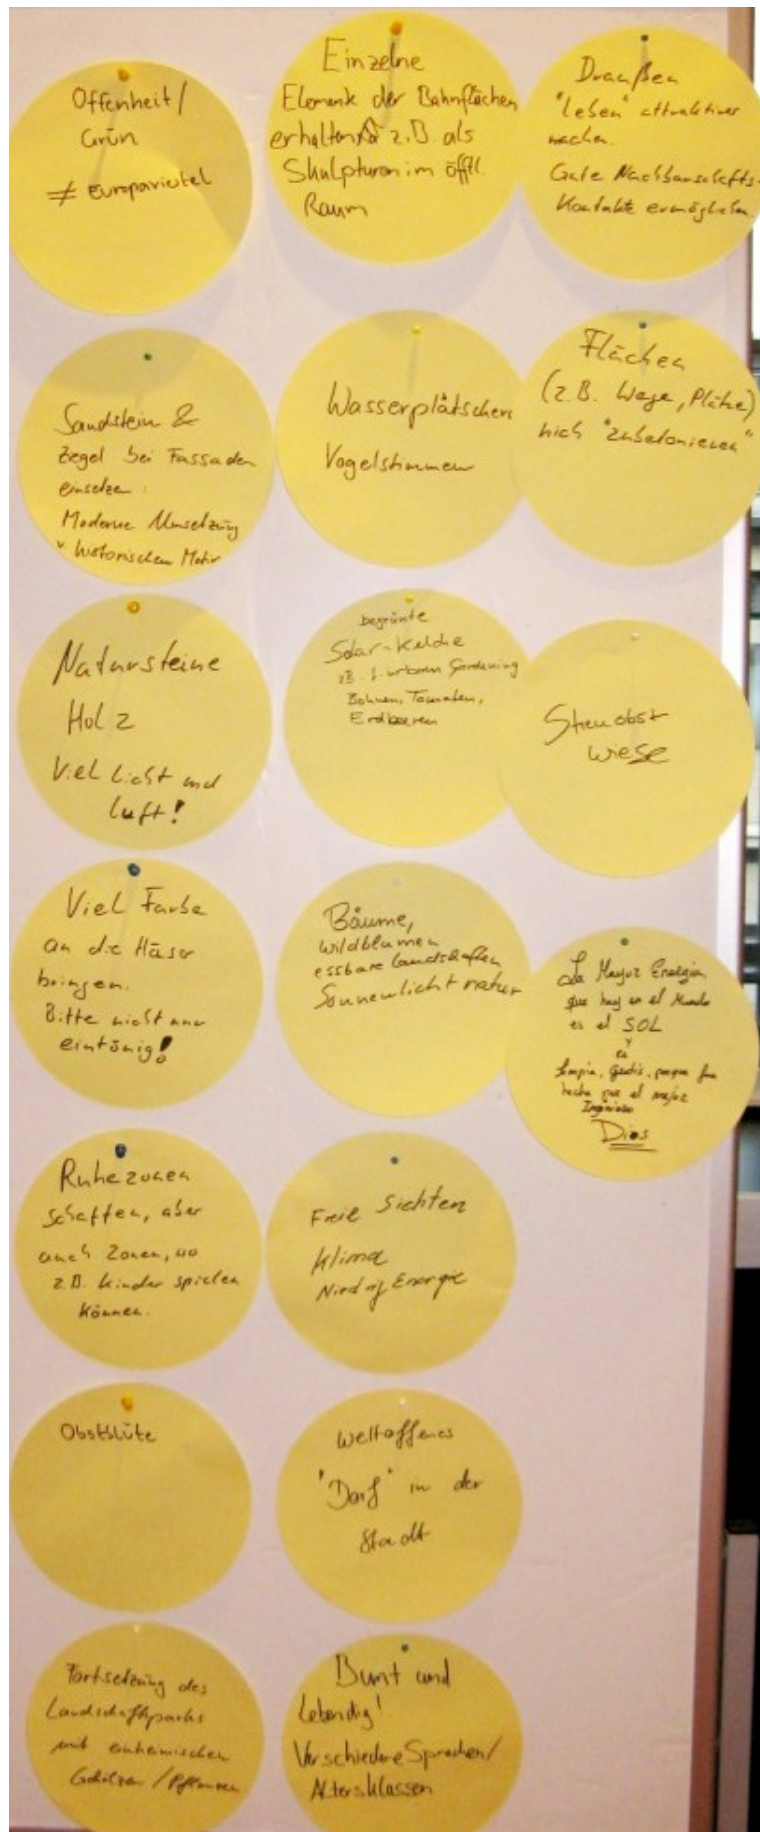 Offenheit/
Grün
≠ Europaviertel
Sandstein &
Ziegel bei Fassaden
einsetzen
Moderne Umsetzung
v. historischem Motiv
Natursteine
Holz
Viel Licht und
Luft!
Viel Farbe
an die Häser
bringen.
Bitte nicht nur
eintönig!
Ruhezonen
schaffen, aber
auch Zonen, wo
z.B. Kinder spielen
können.
Obstblüte
Fortsetzung des
Landschaftsparks
mit einheimischen
Gehölzen / Pflanzen
Einzelne
Elemente der Bahnflächen
erhalten z.B. als
Skulpturen im öfftl.
Raum
Wasserplätschern
Vogelstimmen
begrünte
Solar-Kelche
zB. f. urban Gardening
Bohnen, Tomaten,
Erdbeeren
Bäume,
Wildblumen
essbare Landschaften
Sonnenlicht natur
Freie Sichten
Klima
Niedrig Energie
Weltoffenes
"Dorf" in der
Stadt
Bunt und
Lebendig!
Verschiedene Sprachen/
Altersklassen
Draußen
"leben" attraktiver
machen.
Gute Nachbarschafts-
Kontakte ermöglichen.
Flächen
(z.B. Wege, Plätze)
nich "zubetonieren"
Streuobst
wiese
La Mayor Energia
que hay en el Mundo
es el SOL
y
es
limpia, gratis, porque fue
hecha por el mejor
Ingeniero
Dios